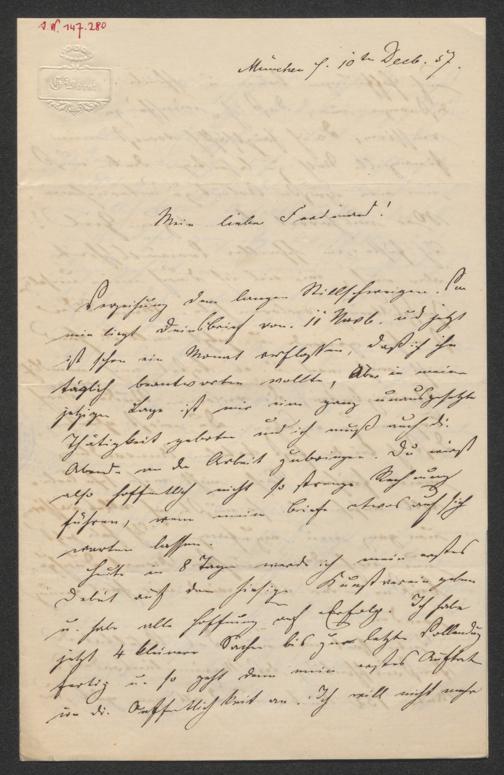 J. N. 147.280
München d. 10ten Decb. 57.
Mein lieber Ferdinand!
Verzeihung dem langen Stillschweigen. Vor
mir liegt Dein Brief vom 11 Novb. und jetzt
ist schon ein Monat verflossen, daß ich ihn
täglich beantworten wollte, Aber in meiner
jetzigen Lage ist mir eine ganz unausgesetzte
Thätigkeit geboten und ich muß auch die
Abende an der Arbeit zubringen. Du wirst
also hoffentlich nicht so strenge Rechnung
führen, wenn meine Briefe etwas auf sich
warten lassen.
Heute in 8 Tagen werde ich mein erstes
Debut auf dem hiesigen Kunstverein geben
u. habe alle Hoffnung auf Erfolg. Ich habe
jetzt 4 kleinere Sachen bis zur letzten Vollendung
fertig u. so geht denn mein erstes Auftreten
in die Oeffentlichkeit an. Ich will nicht mehr